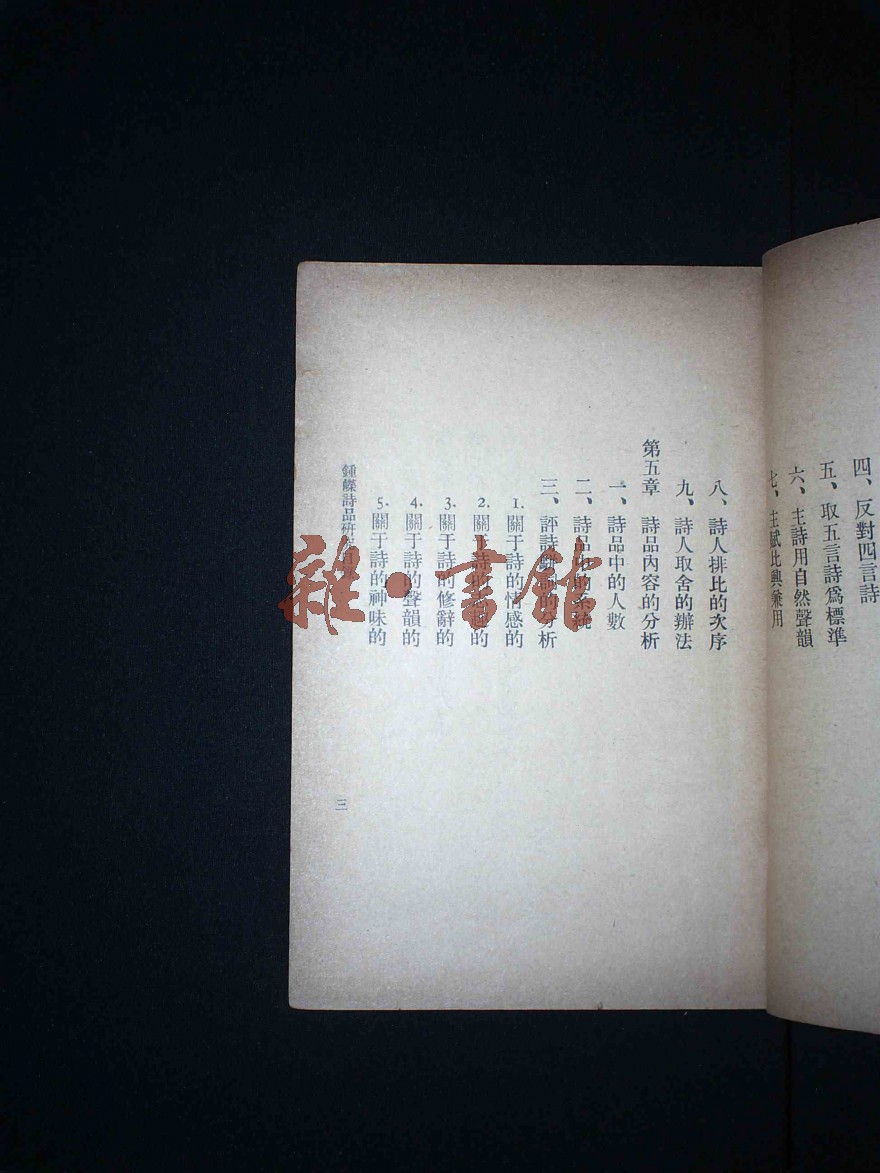 四、反對四言詩
五、取五言詩爲標準
六、主詩用自然聲韻
七、主賦比興兼用
八、詩人排比的次序
九、詩人取舍的辦法
第五章 詩品內容的分析
一、詩品中的人數
二、詩品中的系統
三、評詩 的分析
1.關于詩的情感的
2.關于詩的 的
3.關于詩的修辭的
4.關于詩的聲韻的
5.關于詩的神味的
鍾嶸詩品研究
三
雜·書館